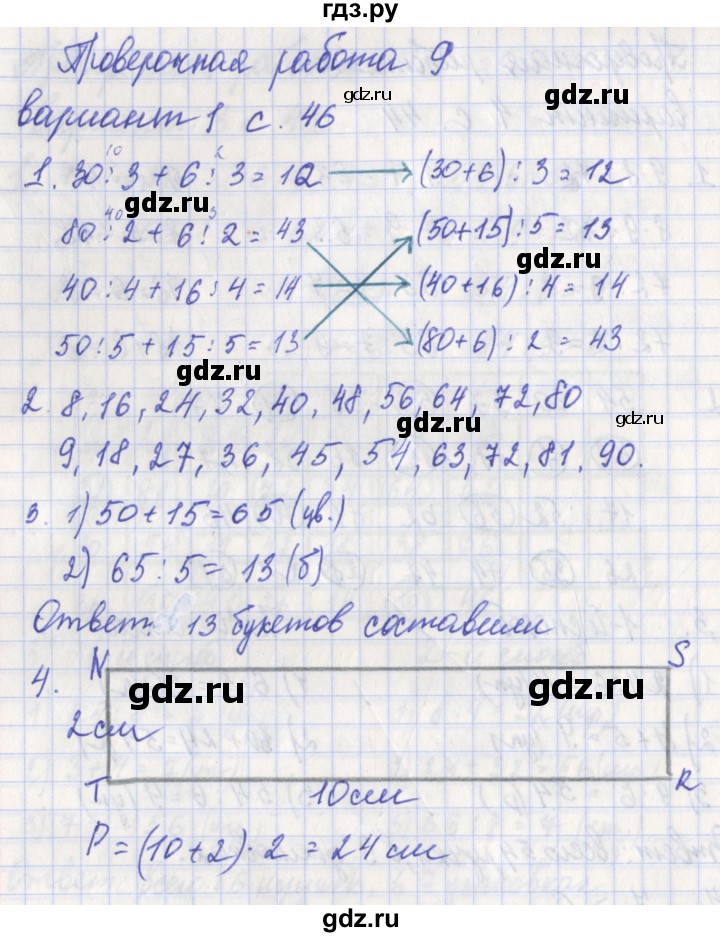 гдз.ру
Проверочная работа 9
gdz.ru
вариант 1 с. 46
gdz.ru
10 2
1. 30:3 + 6:3 = 12 (30+6) : 3 = 12
gdz.ru
40 3
80:2 + 6:2 = 43 (50+15) : 5 = 13
gdz.ru
40:4 + 16:4 = 14 (40+16) : 4 = 14
50:5 + 15:5 = 13 (80+6) : 2 = 43
gdz.ru
2. 8, 16, 24, 32, 40, 48, 56, 64, 72, 80
gdz.ru
9, 18, 27, 36, 45, 54, 63, 72, 81, 90.
3. 1) 50+15=65 (цв.)
gdz.ru
2) 65:5 = 13 (б)
Ответ: 13 букетов составили
4. N S
gdz.ru gdz.ru
2 см
T 10 см R
P = (10+2) · 2 = 24 см
gdz.ru